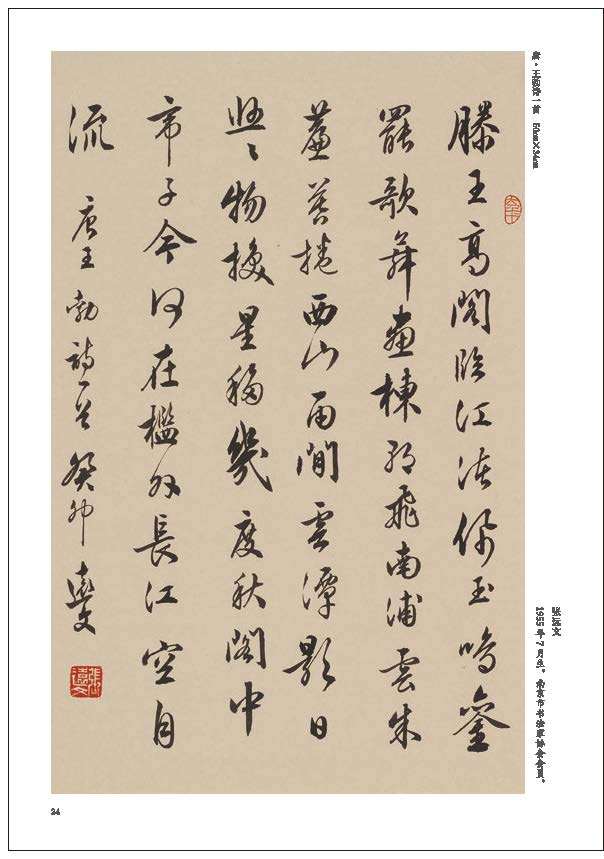 唐·王勃诗一首 50cm×34cm
滕王高閣臨江渚佩玉鳴鑾
罷歌舞畫棟朝飛南浦雲朱
簾暮捲西山雨閒雲潭影日
悠〻物換星移幾度秋閣中
帝子今何在檻外長江空自
流 唐王勃詩一首 癸卯 遠文
張遠文
张远文
1955年7月生。南京市书法家协会会员。
24